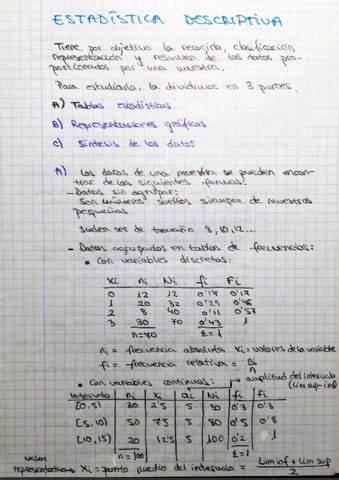 ESTADÍSTICA DESCRIPTIVA
Tiene por objetivo la recogida, clasificación,
representación y resumen de los datos pro-
porcionados por una muestra.
Para estudiarla, la dividimos en 3 partes.
A) Tablas estadísticas
B) Representaciones gráficas
C) Síntesis de los datos
A) Los datos de una muestra se pueden encon-
trar de las siguientes formas:
- Datos sin agrupar:
Son números sueltos siempre de muestras
pequeñas.
Suelen ser de tamaño 8, 10, 12...
- Datos agrupados en tablas de frecuencias:
• Con variables discretas:
xi ni Ni fi Fi
0 12 12 0'17 0'17
1 20 32 0'29 0'46
2 8 40 0'11 0'57
3 30 70 0'43 1
n=70 Σ=1
ni = frecuencia absoluta xi=valores de la variable
fi = frecuencia relativa = ni/n
• Con variables continuas: amplitud del intervalo
(lim sup-inf)
Intervalo ni xi ai Ni fi Fi
[0,5) 30 2'5 5 30 0'3 0'3
[5,10) 50 7'5 5 80 0'5 0'8
[10,15) 20 12'5 5 100 0'2 1
n=100 Σ=1
valor
representativo → xi = punto medio del intervalo = Lim inf + Lim sup / 2